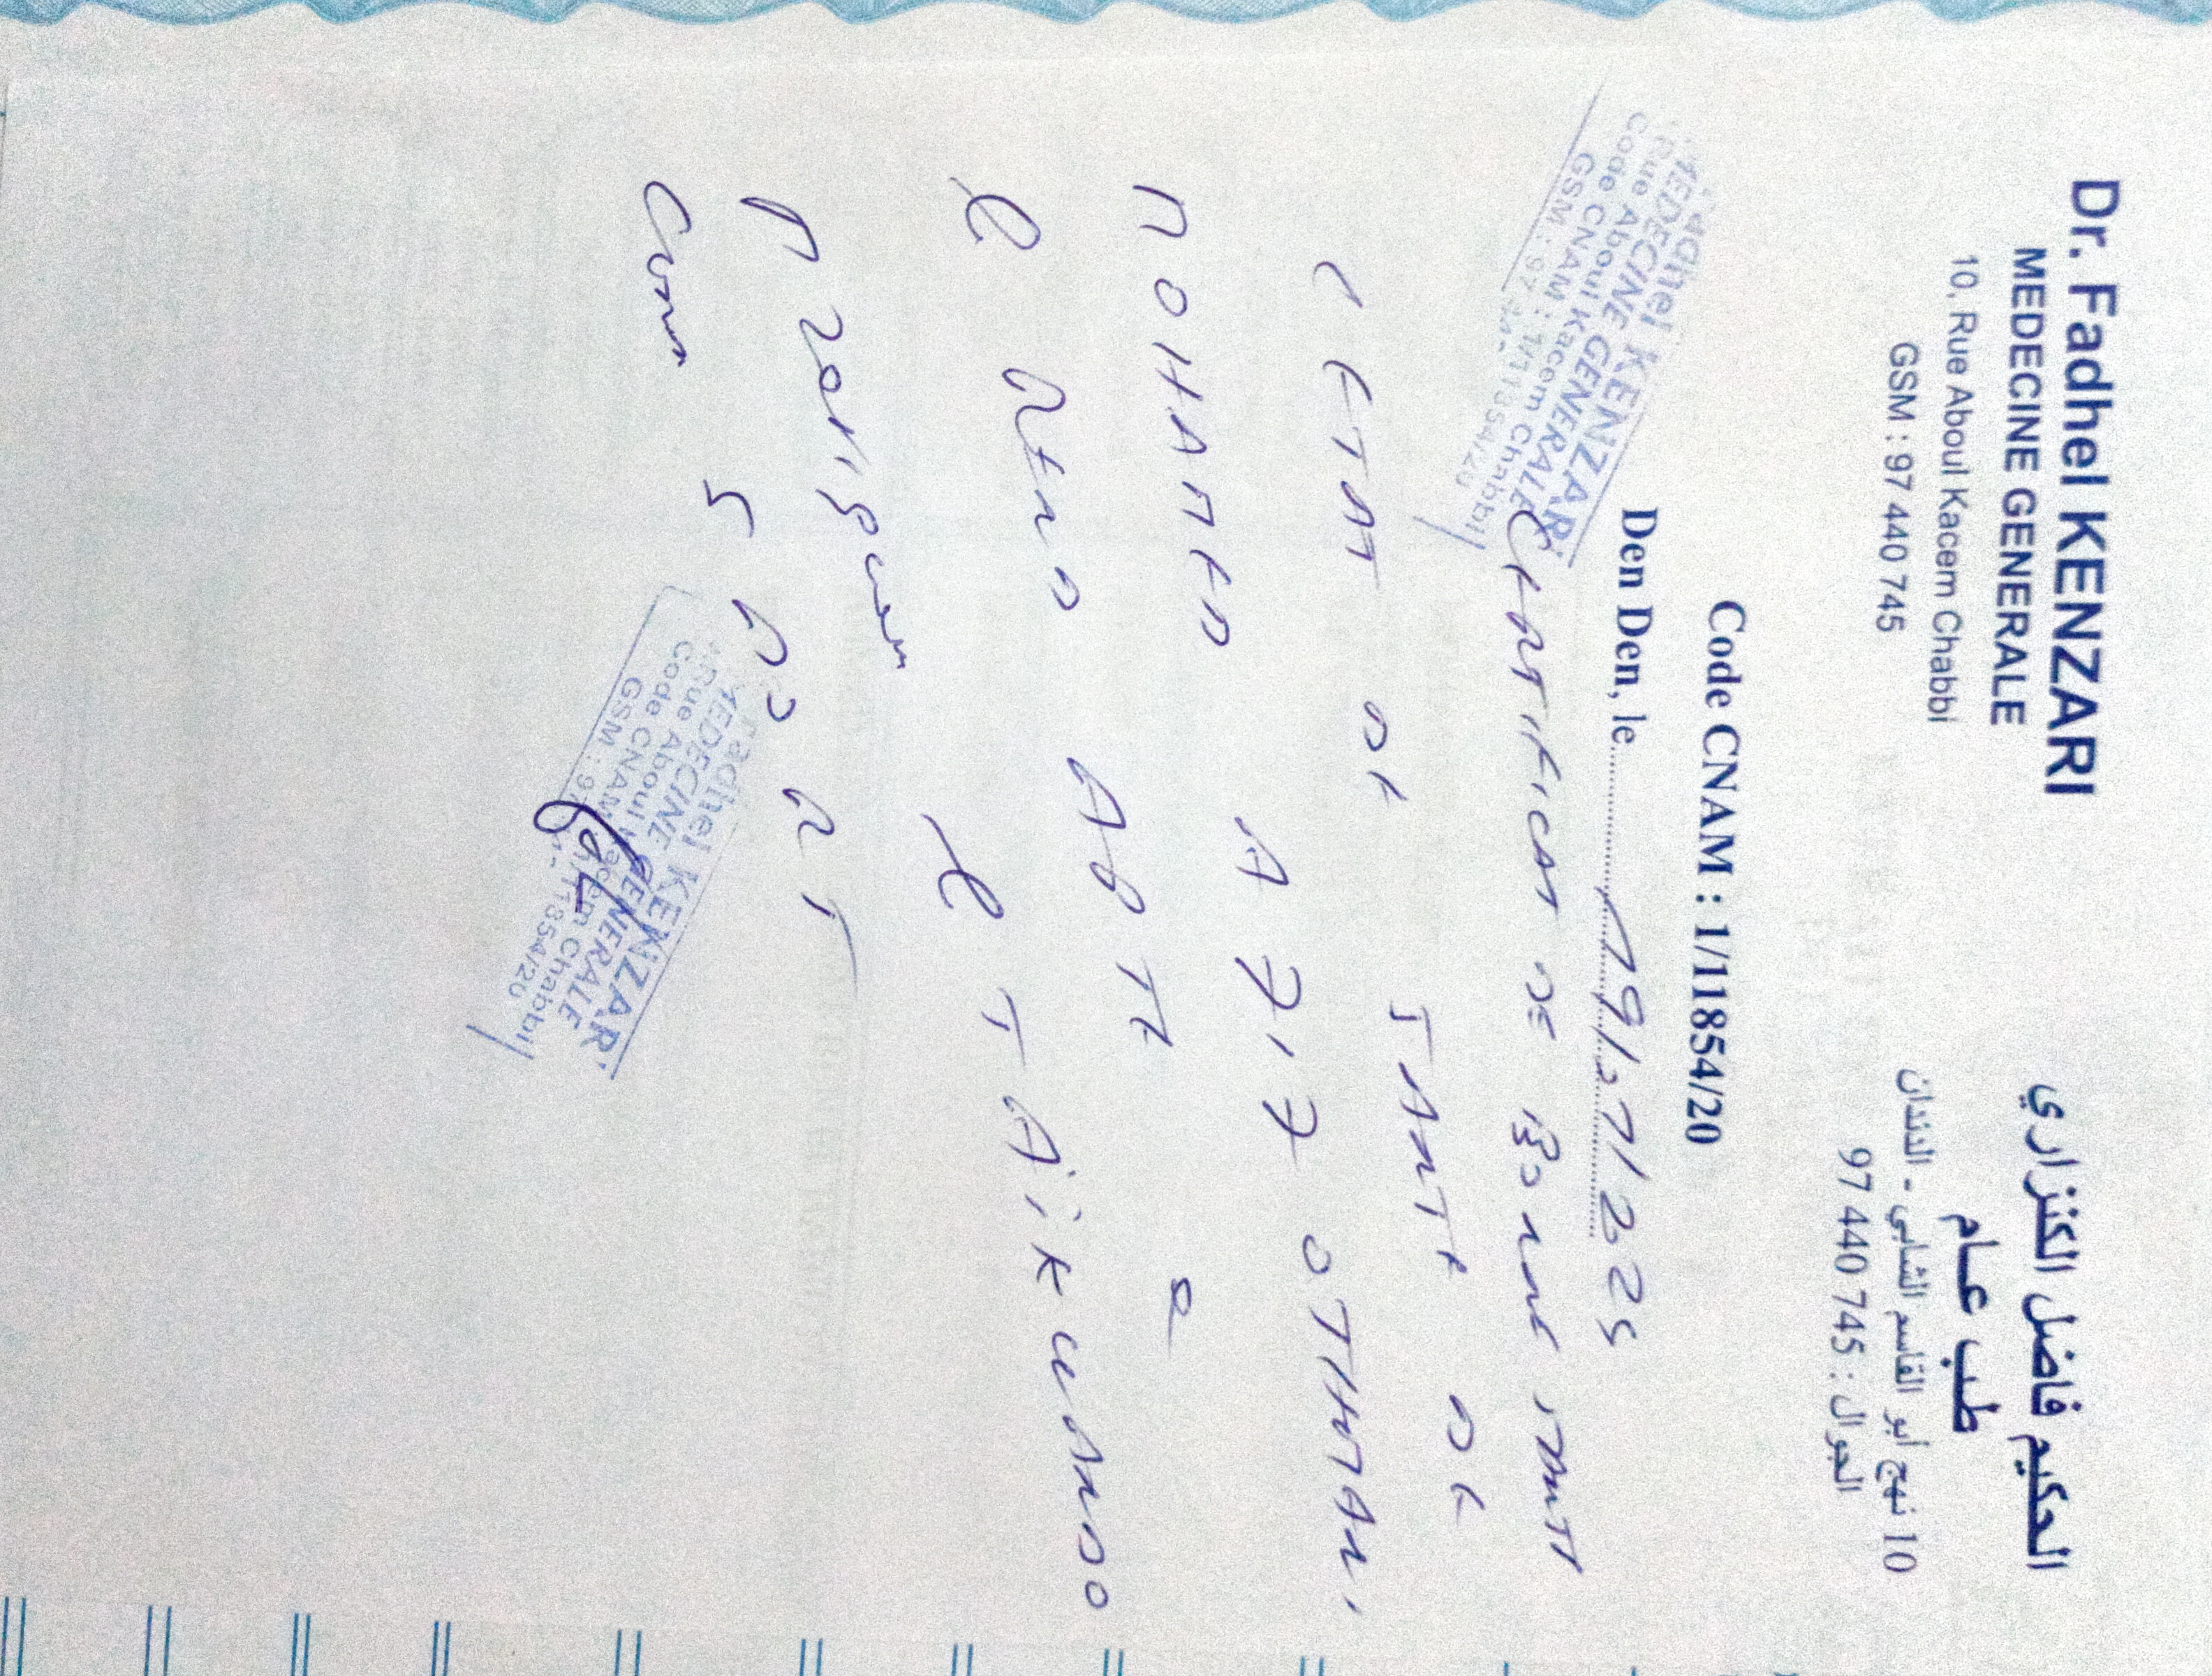 Dr. Fadhel KENZARI
MEDECINE GENERALE
10, Rue Aboul Kacem Chabbi
GSM : 97 440 745
الحكيم فاضل الكنزاري
طب عام
10 نهج أبو القاسم الشابي - الدندان
الجوال : 97 440 745
Code CNAM : 1/11854/20
Den Den, le 19/07/2025
CERTIFICAT DE BONNE SANTE
L ETAT DE SANTE DE
MOHAMED AZIZ OTHMANI
REND APTE a
TAIKWENDO
Fadhel KENZARI
MEDECINE GENERALE
Rue Aboul Kacem Chabbi
Code CNAM : 1/11854/20
GSM : 97
SPORT
Fadhel KENZARI
MEDECINE GENERALE
Rue Aboul Kacem Chabbi
Code CNAM 1/11854/20
GSM : 97